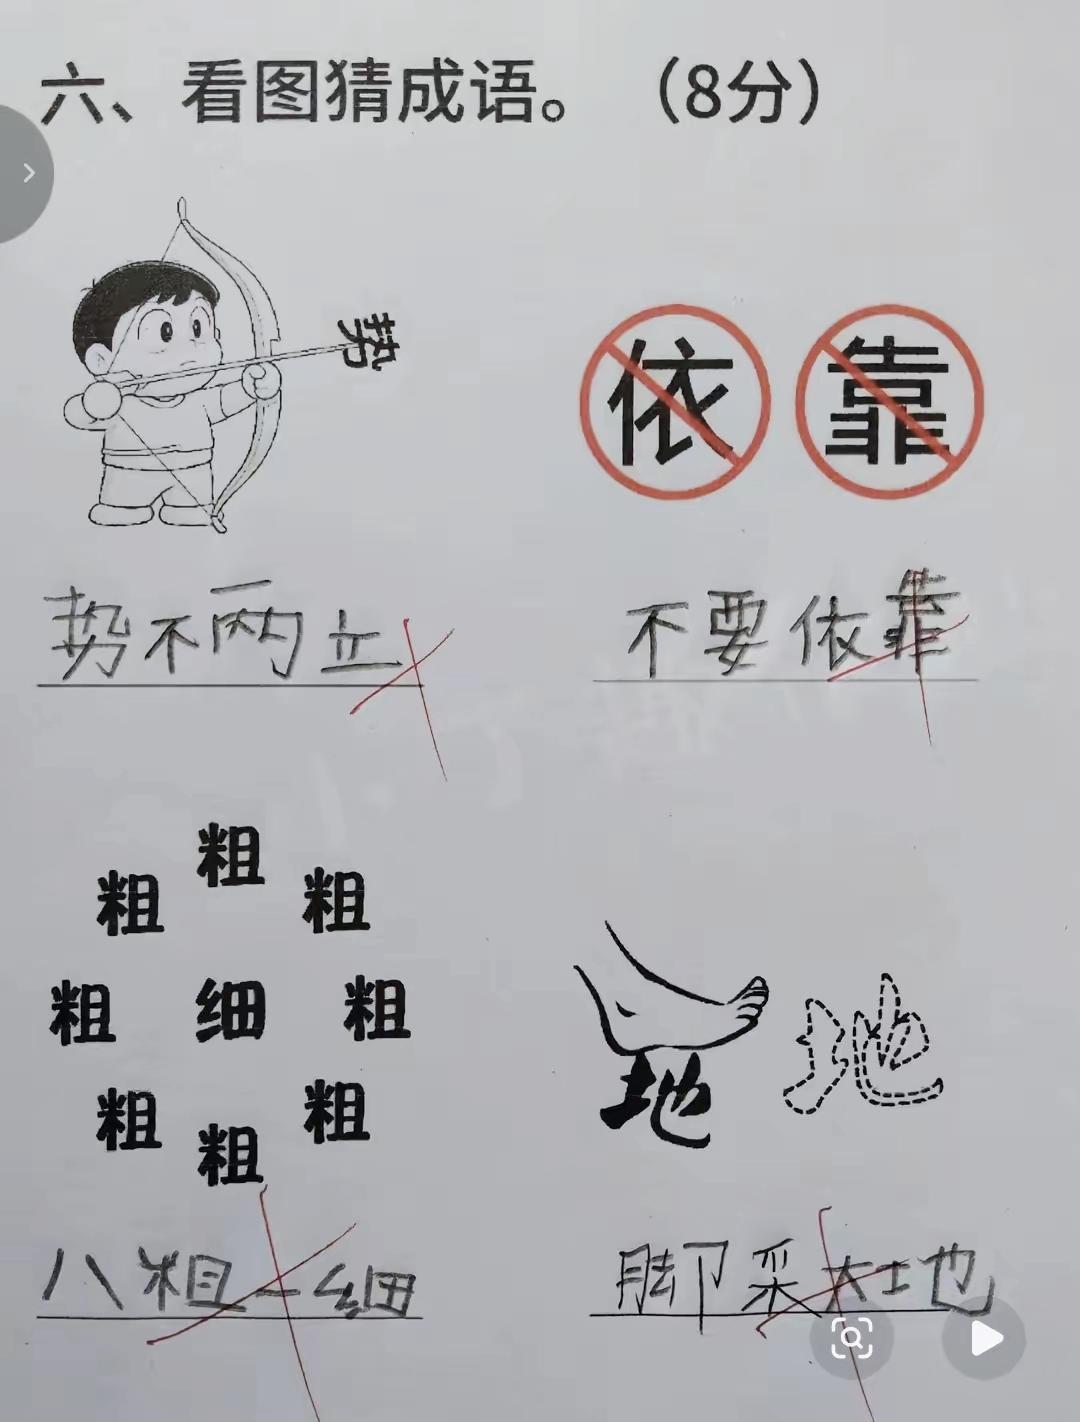 六、看图猜成语。（8分）
势
依 靠
势不两立
不要依靠
粗
粗 粗
粗 细 粗
粗 粗
粗
地 地
八粗一细
脚采大地